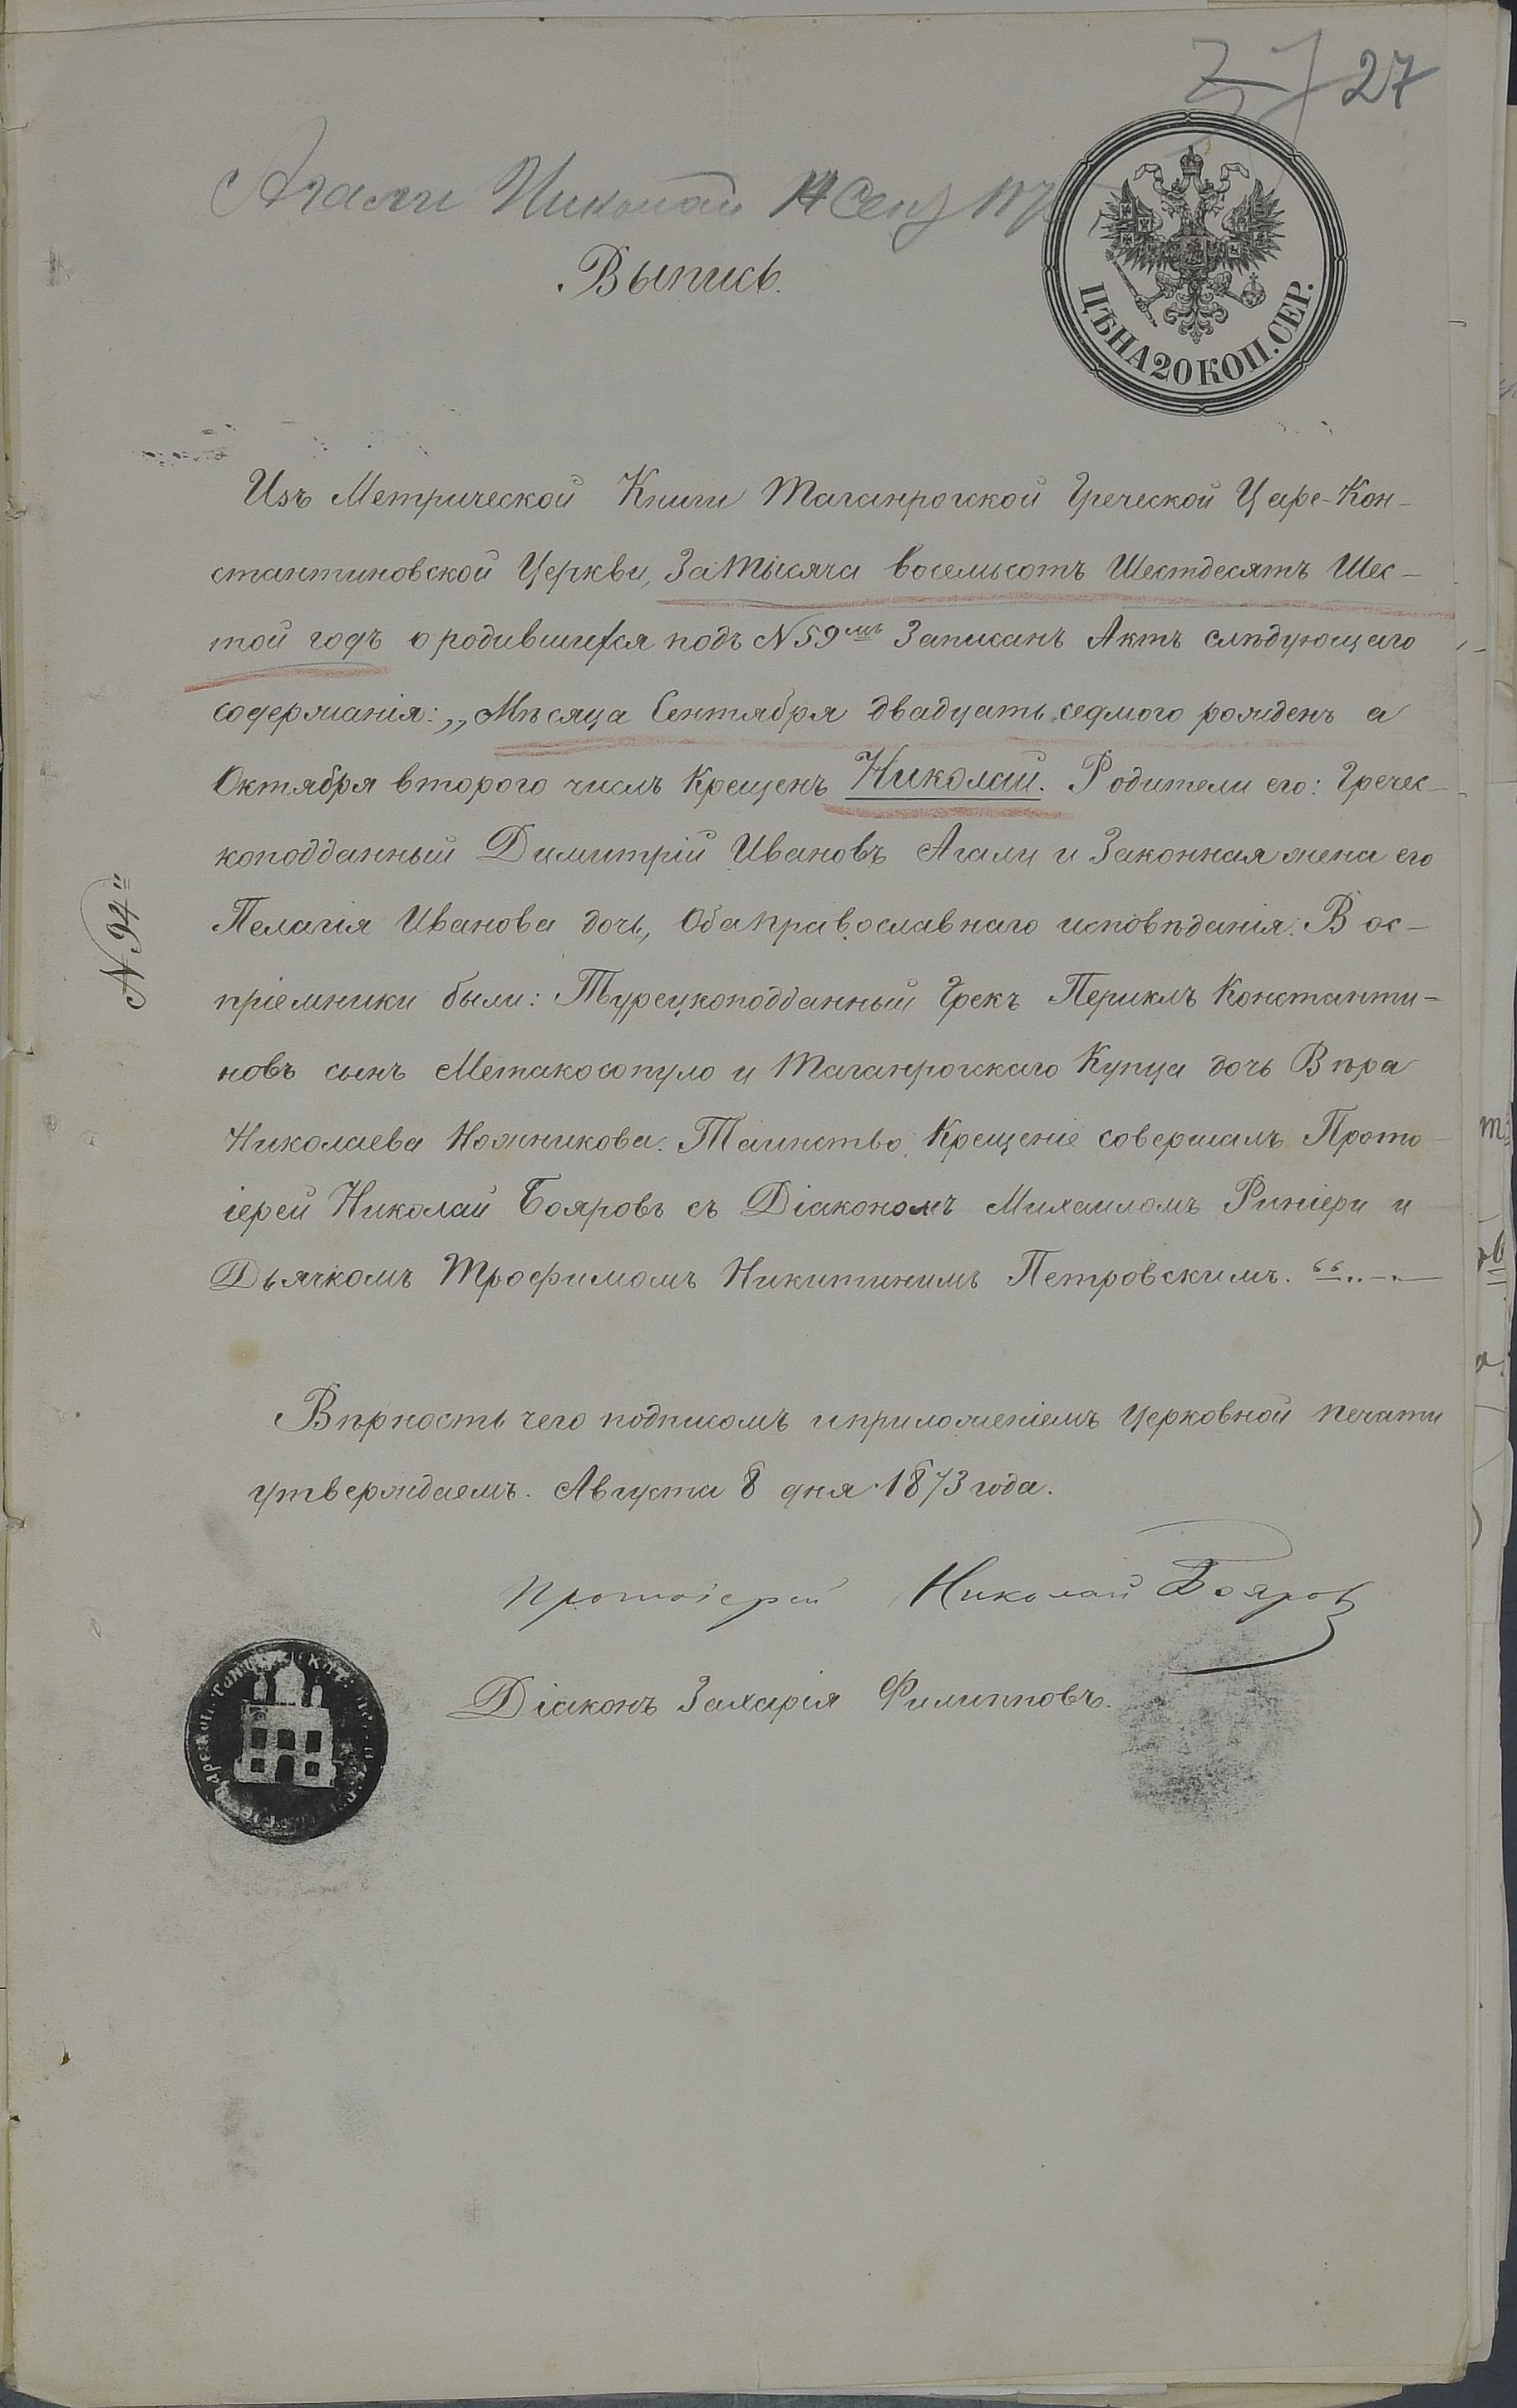 27
27
Агали Николай 14 Сен
Выпись.
ЦѢНА 20 КОП. СЕР.
Изъ Метрической Книги Таганрогской Греческой Царе-Кон-
стантиновской Церкви, за тысяча восемьсотъ Шестдесятъ Шес-
той годъ о родившихся подъ N 59мъ Записанъ Актъ слѣдующаго
содержанія: „Мѣсяца Сентября двадцать седмого рожденъ а
Октября второго числъ Крещенъ Николай. Родители его: Гречес-
коподданный Димитрій Ивановъ Агали и Законная жена его
Пелагія Иванова дочь, Оба православнаго исповѣданія. Вос-
пріемники были: Турецкоподданный Грекъ Периклъ Константи-
новъ сынъ Метакосопуло и Таганрогскаго Купца дочь Вѣра
Николаева Ножникова. Таинство Крещеніе совершалъ Прото-
іерей Николай Бояровъ съ Діакономъ Михаиломъ Риніери и
Дьячкомъ Трофимомъ Никитинимъ Петровскимъ.“
N 94
Вѣрность чего подписомъ и приложеніемъ Церковной печати
утверждаемъ. Августа 8 дня 1873 года.
Протоіерей Николай Бояров
Діаконъ Захарія Филипповъ.